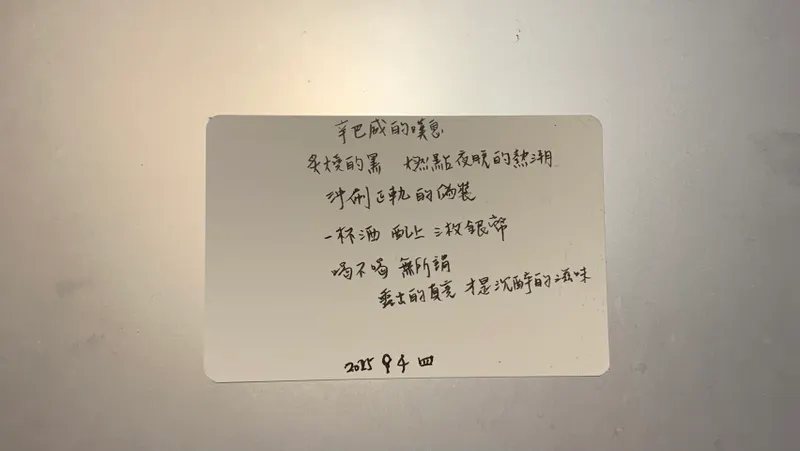 辛巴威的嘆息
炙燒的黑 燃點夜晚的熱潮
沖刷正軌的偽裝
一杯酒 配上 三枚銀幣
喝不喝 無所謂
露出的真亮 才是沉醉的滋味
2025 9 4 四